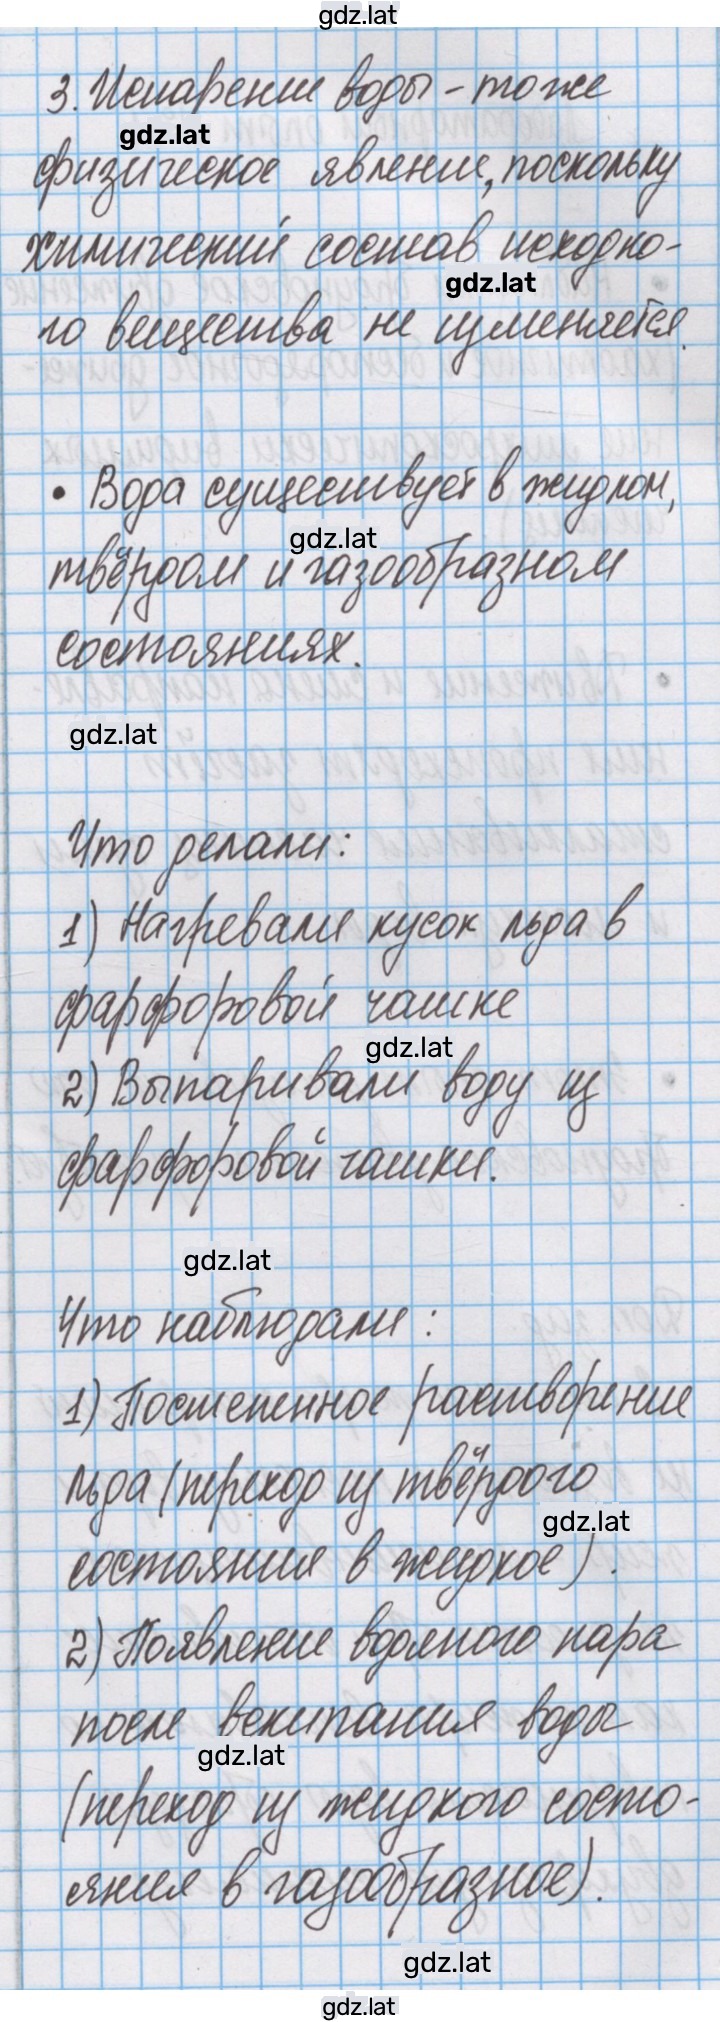 gdz.lat
3. Испарение воды - тоже
gdz.lat
физическое явление, поскольку
химический состав исходно-
gdz.lat
го вещества не изменяется.
• Вода существует в жидком,
gdz.lat
твёрдом и газообразном
состояниях.
gdz.lat
Что делали:
1) Нагревали кусок льда в
фарфоровой чашке
gdz.lat
2) Выпаривали воду из
фарфоровой чашки.
gdz.lat
Что наблюдали:
1) Постепенное растворение
льда (переход из твёрдого
gdz.lat
состояния в жидкое).
2) Появление водяного пара
после вскипания воды
gdz.lat
(переход из жидкого состо-
яния в газообразное).
gdz.lat
gdz.lat